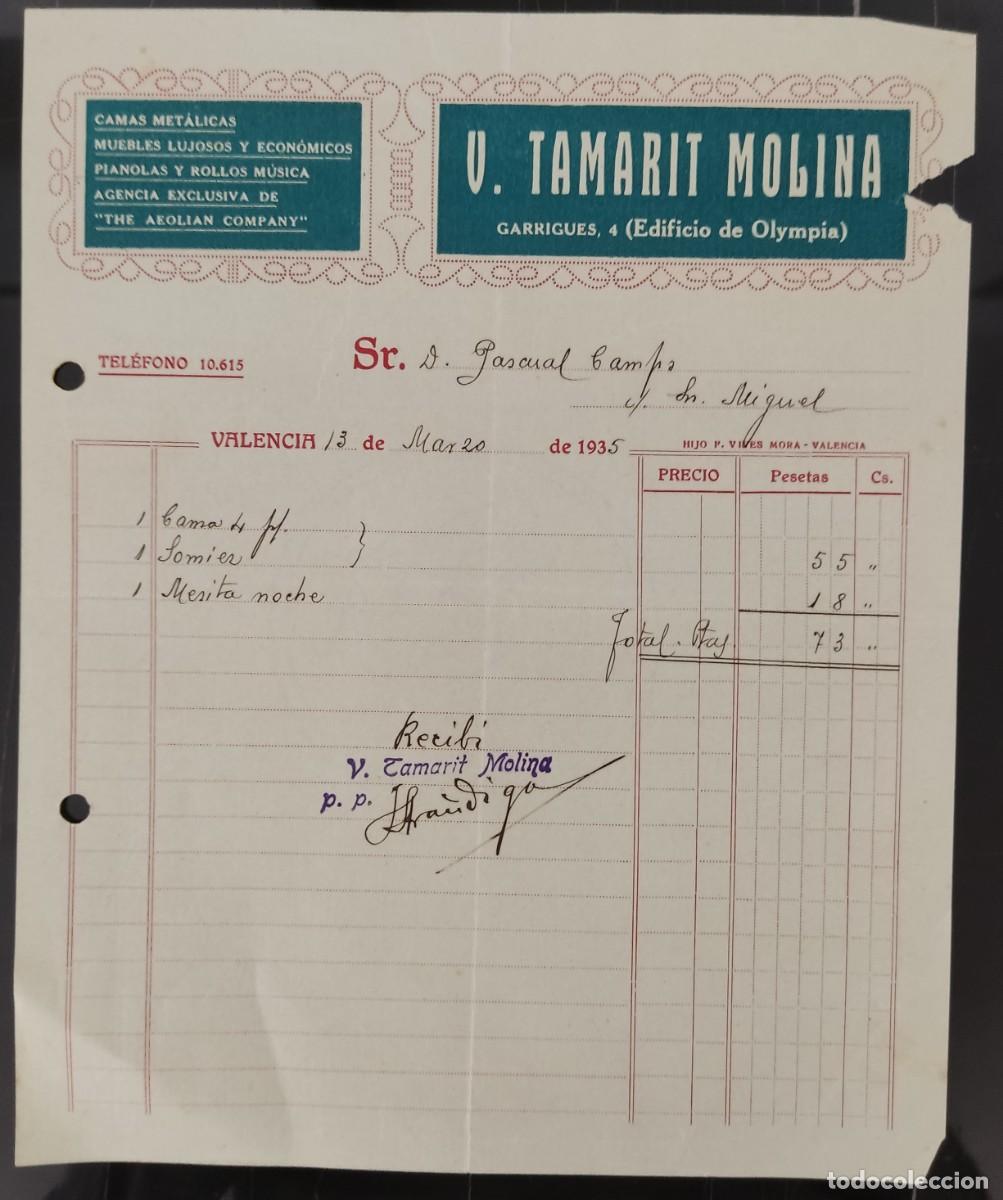 CAMAS METÁLICAS
MUEBLES LUJOSOS Y ECONÓMICOS
PIANOLAS Y ROLLOS MÚSICA
AGENCIA EXCLUSIVA DE
"THE AEOLIAN COMPANY"
V. TAMARIT MOLINA
GARRIGUES, 4 (Edificio de Olympia)
TELÉFONO 10.615
Sr. D. Pascual Camps
c/. Sn. Miguel
VALENCIA 13 de Marzo de 1935
HIJO F. VIVES MORA - VALENCIA
PRECIO Pesetas Cs.
1 Cama 4 pf.
1 Somier } 55 "
1 Mesita noche 18 "
Total. Ptas. 73 "
Recibi
V. Tamarit Molina
p. p.
todocoleccion